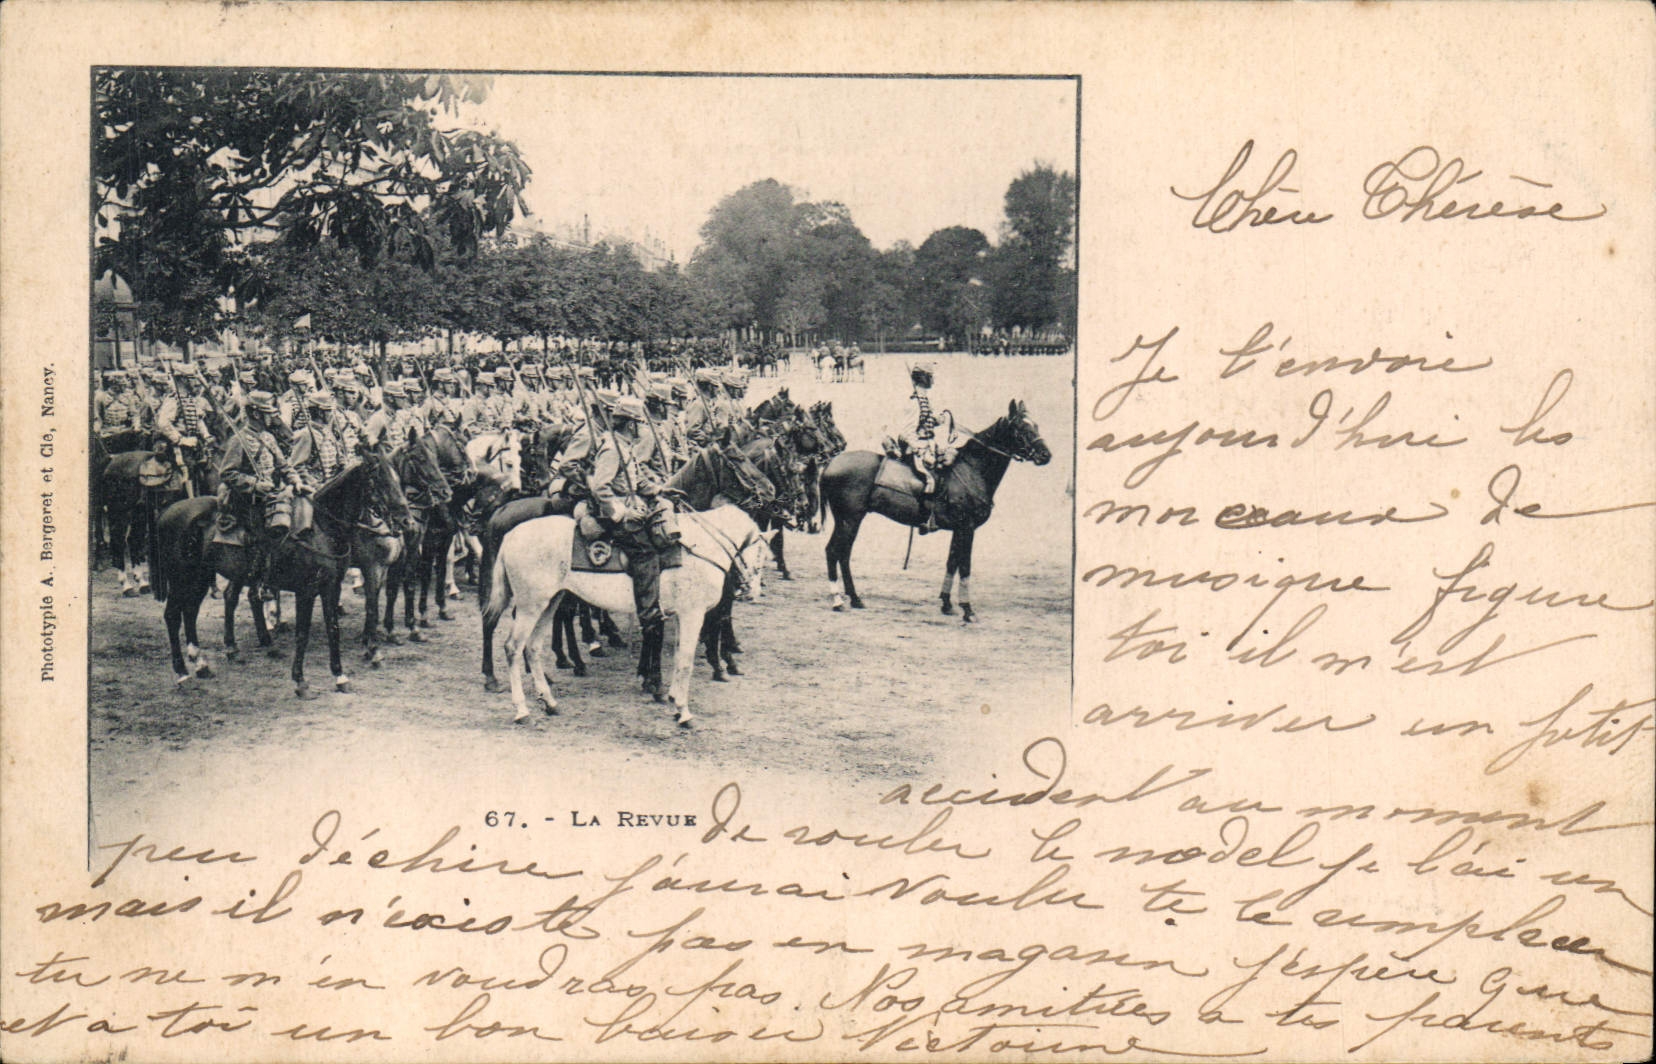 Chère Thérèse
Je t'envoie
aujourd'hui les
morceaux de
musique figure
toi il m'est
arriver un petit
accident au moment
de rouler le model je l'ai un
peu déchire j'aurai voulu te le remplacer
mais il n'existe pas en magasin j'espère que
tu ne m'en voudras pas. Nos amitiées a tes parents
et a toi un bon baiser Victorine
67. - LA REVUE
Phototypie A. Bergeret et Cie, Nancy.